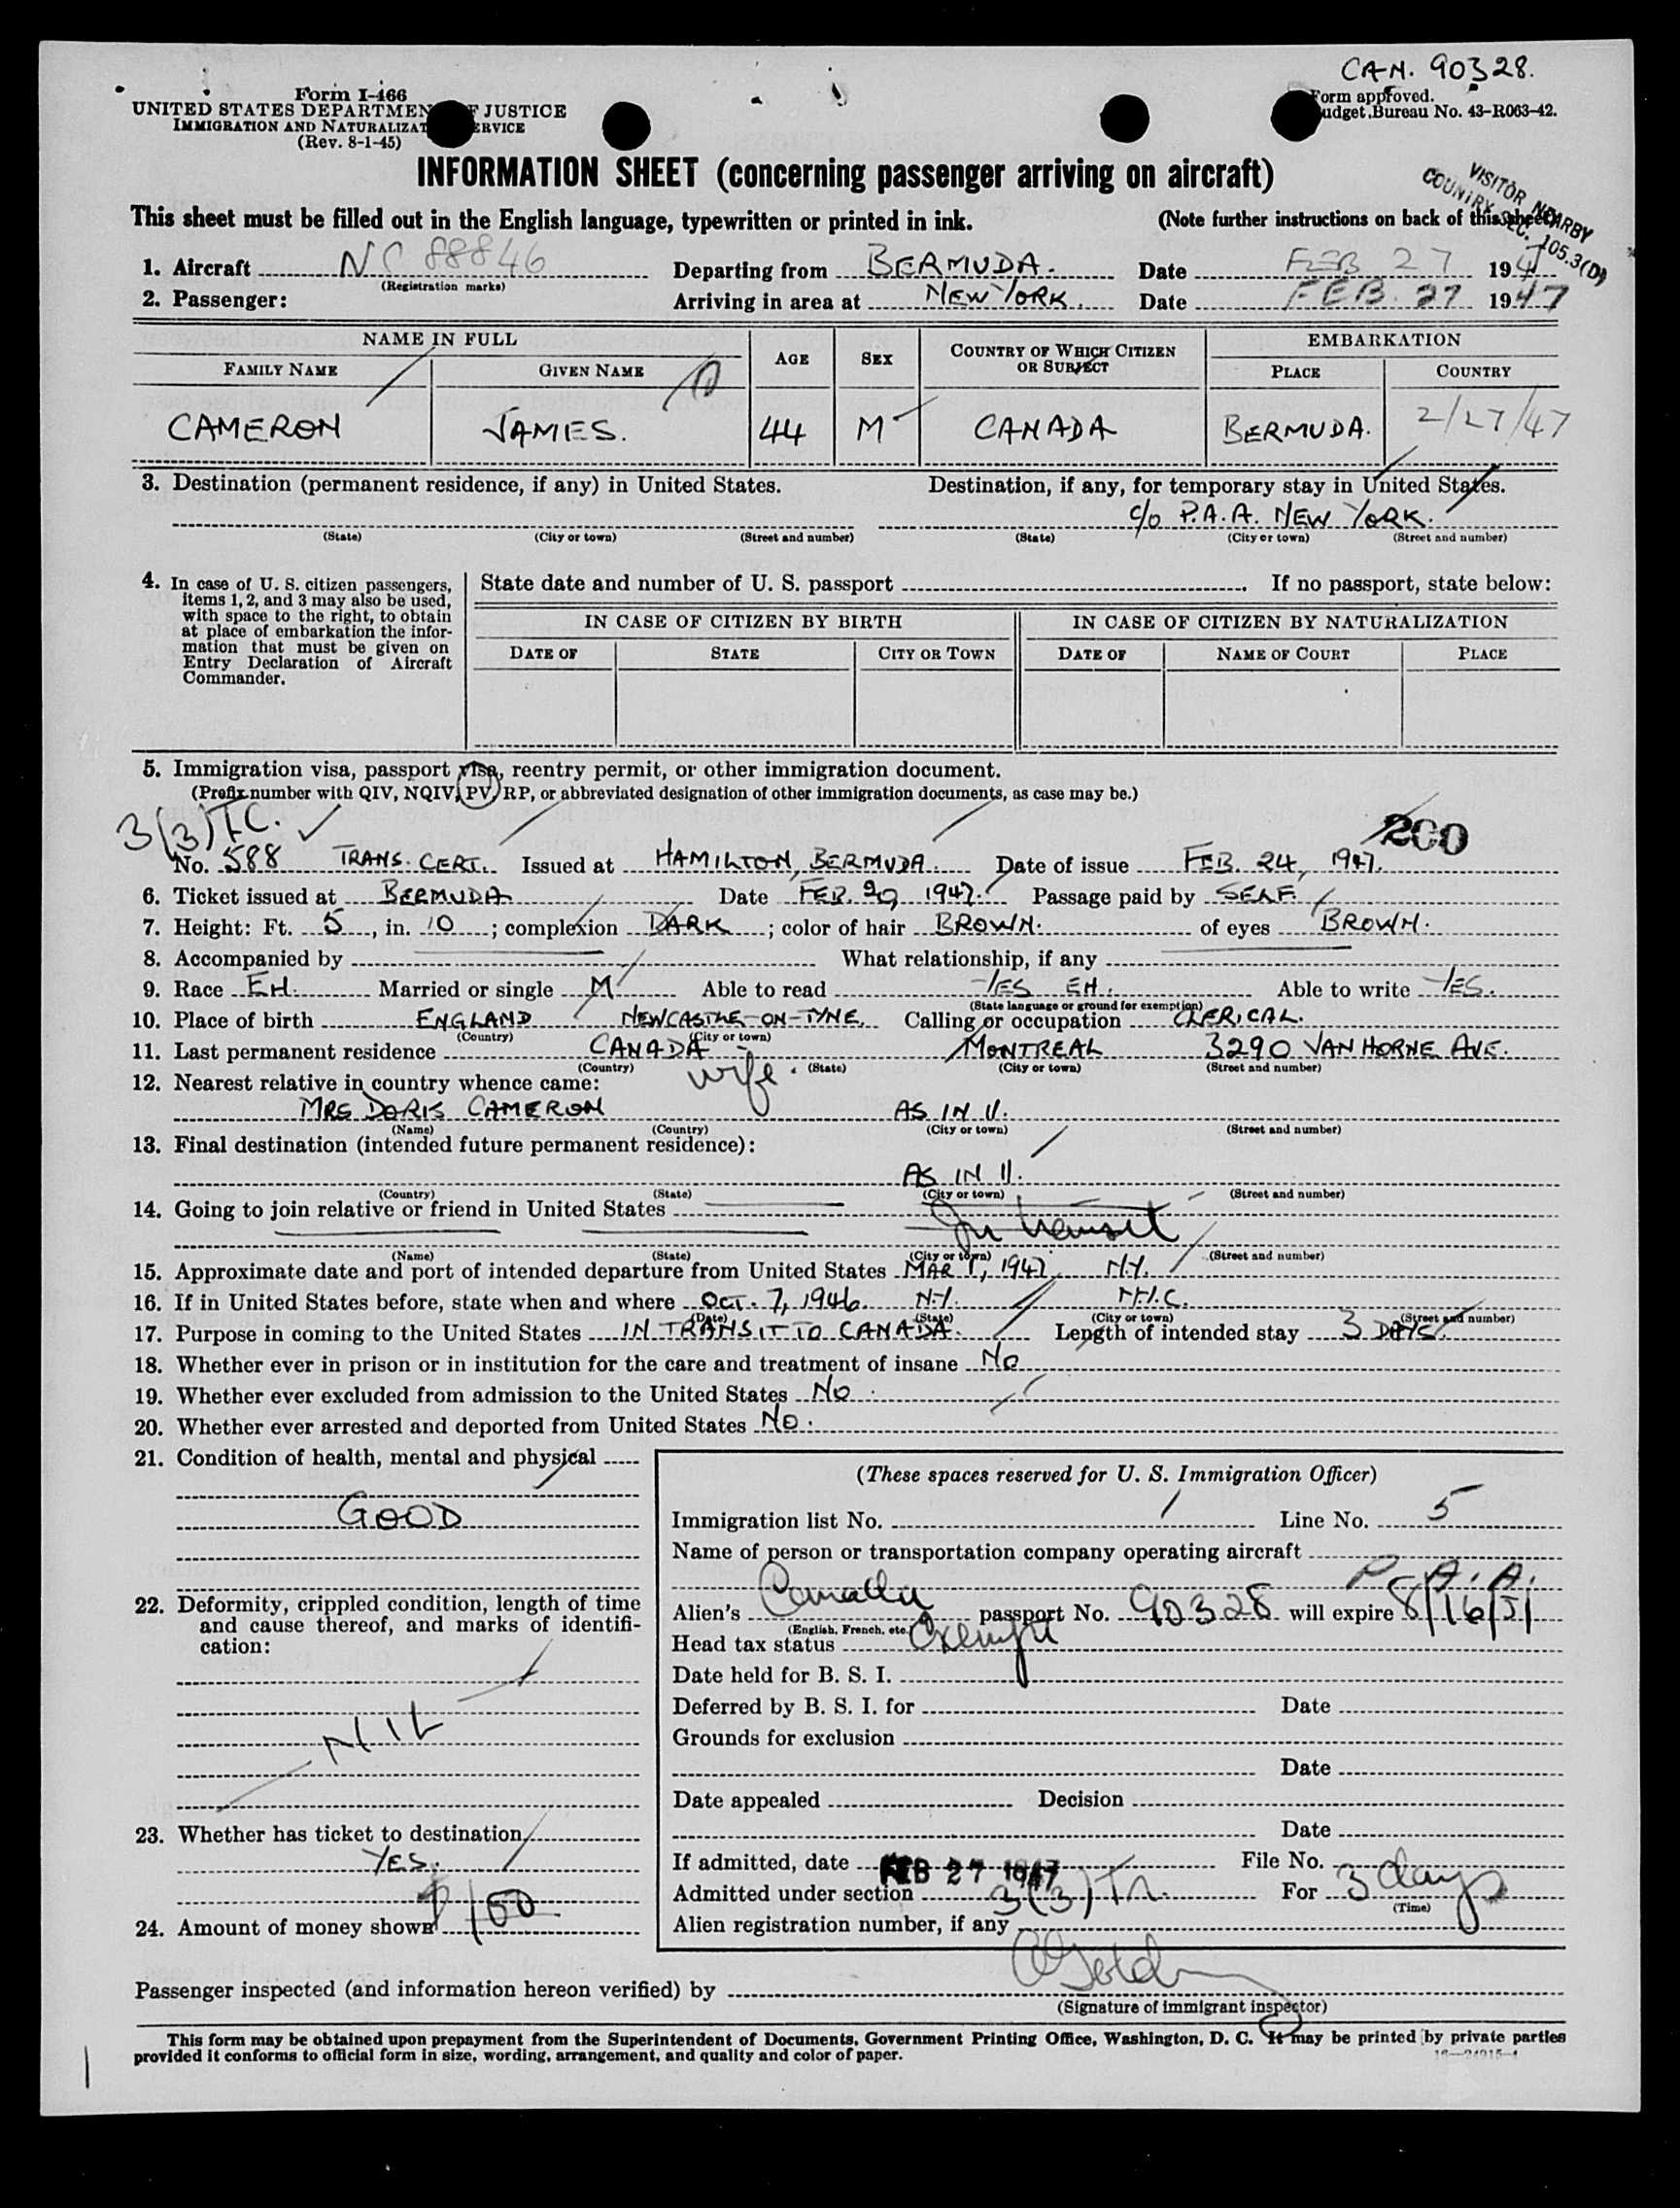 CAN. 90328.
Form I-466
UNITED STATES DEPARTMEN F JUSTICE
IMMIGRATION AND NATURALIZAT ERVICE
(Rev. 8-1-45)
orm approved.
udget Bureau No. 43-R063-42.
INFORMATION SHEET (concerning passenger arriving on aircraft)
VISITOR NEARBY
COUNTRY SEC. 105.3(D)
This sheet must be filled out in the English language, typewritten or printed in ink. (Note further instructions on back of this sheet)
1. Aircraft NC 88846 Departing from BERMUDA. Date FEB 27 1947
(Registration marks)
2. Passenger: Arriving in area at NEW YORK. Date FEB. 27 1947
NAME IN FULL AGE SEX COUNTRY OF WHICH CITIZEN OR SUBJECT EMBARKATION
FAMILY NAME GIVEN NAME PLACE COUNTRY
CAMERON JAMES. 44 M CANADA BERMUDA. 2/27/47
3. Destination (permanent residence, if any) in United States. Destination, if any, for temporary stay in United States.
c/o P.A.A. NEW YORK.
(State) (City or town) (Street and number) (State) (City or town) (Street and number)
4. In case of U. S. citizen passengers,
items 1, 2, and 3 may also be used,
with space to the right, to obtain
at place of embarkation the infor-
mation that must be given on
Entry Declaration of Aircraft
Commander.
State date and number of U. S. passport . If no passport, state below:
IN CASE OF CITIZEN BY BIRTH IN CASE OF CITIZEN BY NATURALIZATION
DATE OF STATE CITY OR TOWN DATE OF NAME OF COURT PLACE
5. Immigration visa, passport visa, reentry permit, or other immigration document.
(Prefix number with QIV, NQIV, PV, RP, or abbreviated designation of other immigration documents, as case may be.)
3(3) T.C. 200
No. 588 TRANS. CERT. Issued at HAMILTON, BERMUDA. Date of issue FEB. 24, 1947.
6. Ticket issued at BERMUDA Date FEB. 20, 1947. Passage paid by SELF.
7. Height: Ft. 5, in. 10; complexion DARK; color of hair BROWN. of eyes BROWN.
8. Accompanied by What relationship, if any
9. Race EH. Married or single M Able to read YES EH. Able to write YES.
(State language or ground for exemption)
10. Place of birth ENGLAND NEWCASTLE-ON-TYNE. Calling or occupation CLERICAL.
(Country) (City or town)
11. Last permanent residence CANADA - MONTREAL 3290 VAN HORNE AVE.
(Country) (State) (City or town) (Street and number)
12. Nearest relative in country whence came: wife.
MRS DORIS CAMERON AS IN 11.
(Name) (Country) (City or town) (Street and number)
13. Final destination (intended future permanent residence):
AS IN 11.
(Country) (State) (City or town) (Street and number)
14. Going to join relative or friend in United States
In transit
(Name) (State) (City or town) (Street and number)
15. Approximate date and port of intended departure from United States MAR 1, 1947 N.Y.
16. If in United States before, state when and where OCT. 7, 1946. N.Y. N.Y.C.
(Date) (State) (City or town) (Street and number)
17. Purpose in coming to the United States IN TRANSIT TO CANADA. Length of intended stay 3 DAYS.
18. Whether ever in prison or in institution for the care and treatment of insane No
19. Whether ever excluded from admission to the United States No.
20. Whether ever arrested and deported from United States No.
21. Condition of health, mental and physical
GOOD
22. Deformity, crippled condition, length of time
and cause thereof, and marks of identifi-
cation:
NIL
23. Whether has ticket to destination
YES.
24. Amount of money shown $150
(These spaces reserved for U. S. Immigration Officer)
Immigration list No. 1 Line No. 5
Name of person or transportation company operating aircraft
P.A.A.
Alien's Canada passport No. 90328 will expire 8/16/51
(English, French, etc.)
Head tax status Exempt
Date held for B. S. I.
Deferred by B. S. I. for Date
Grounds for exclusion
Date
Date appealed Decision
Date
If admitted, date FEB 27 1947 File No.
Admitted under section 3(3) Tr. For 3 days
(Time)
Alien registration number, if any
Passenger inspected (and information hereon verified) by
(Signature of immigrant inspector)
This form may be obtained upon prepayment from the Superintendent of Documents, Government Printing Office, Washington, D. C. It may be printed by private parties
provided it conforms to official form in size, wording, arrangement, and quality and color of paper.
16—24915-4